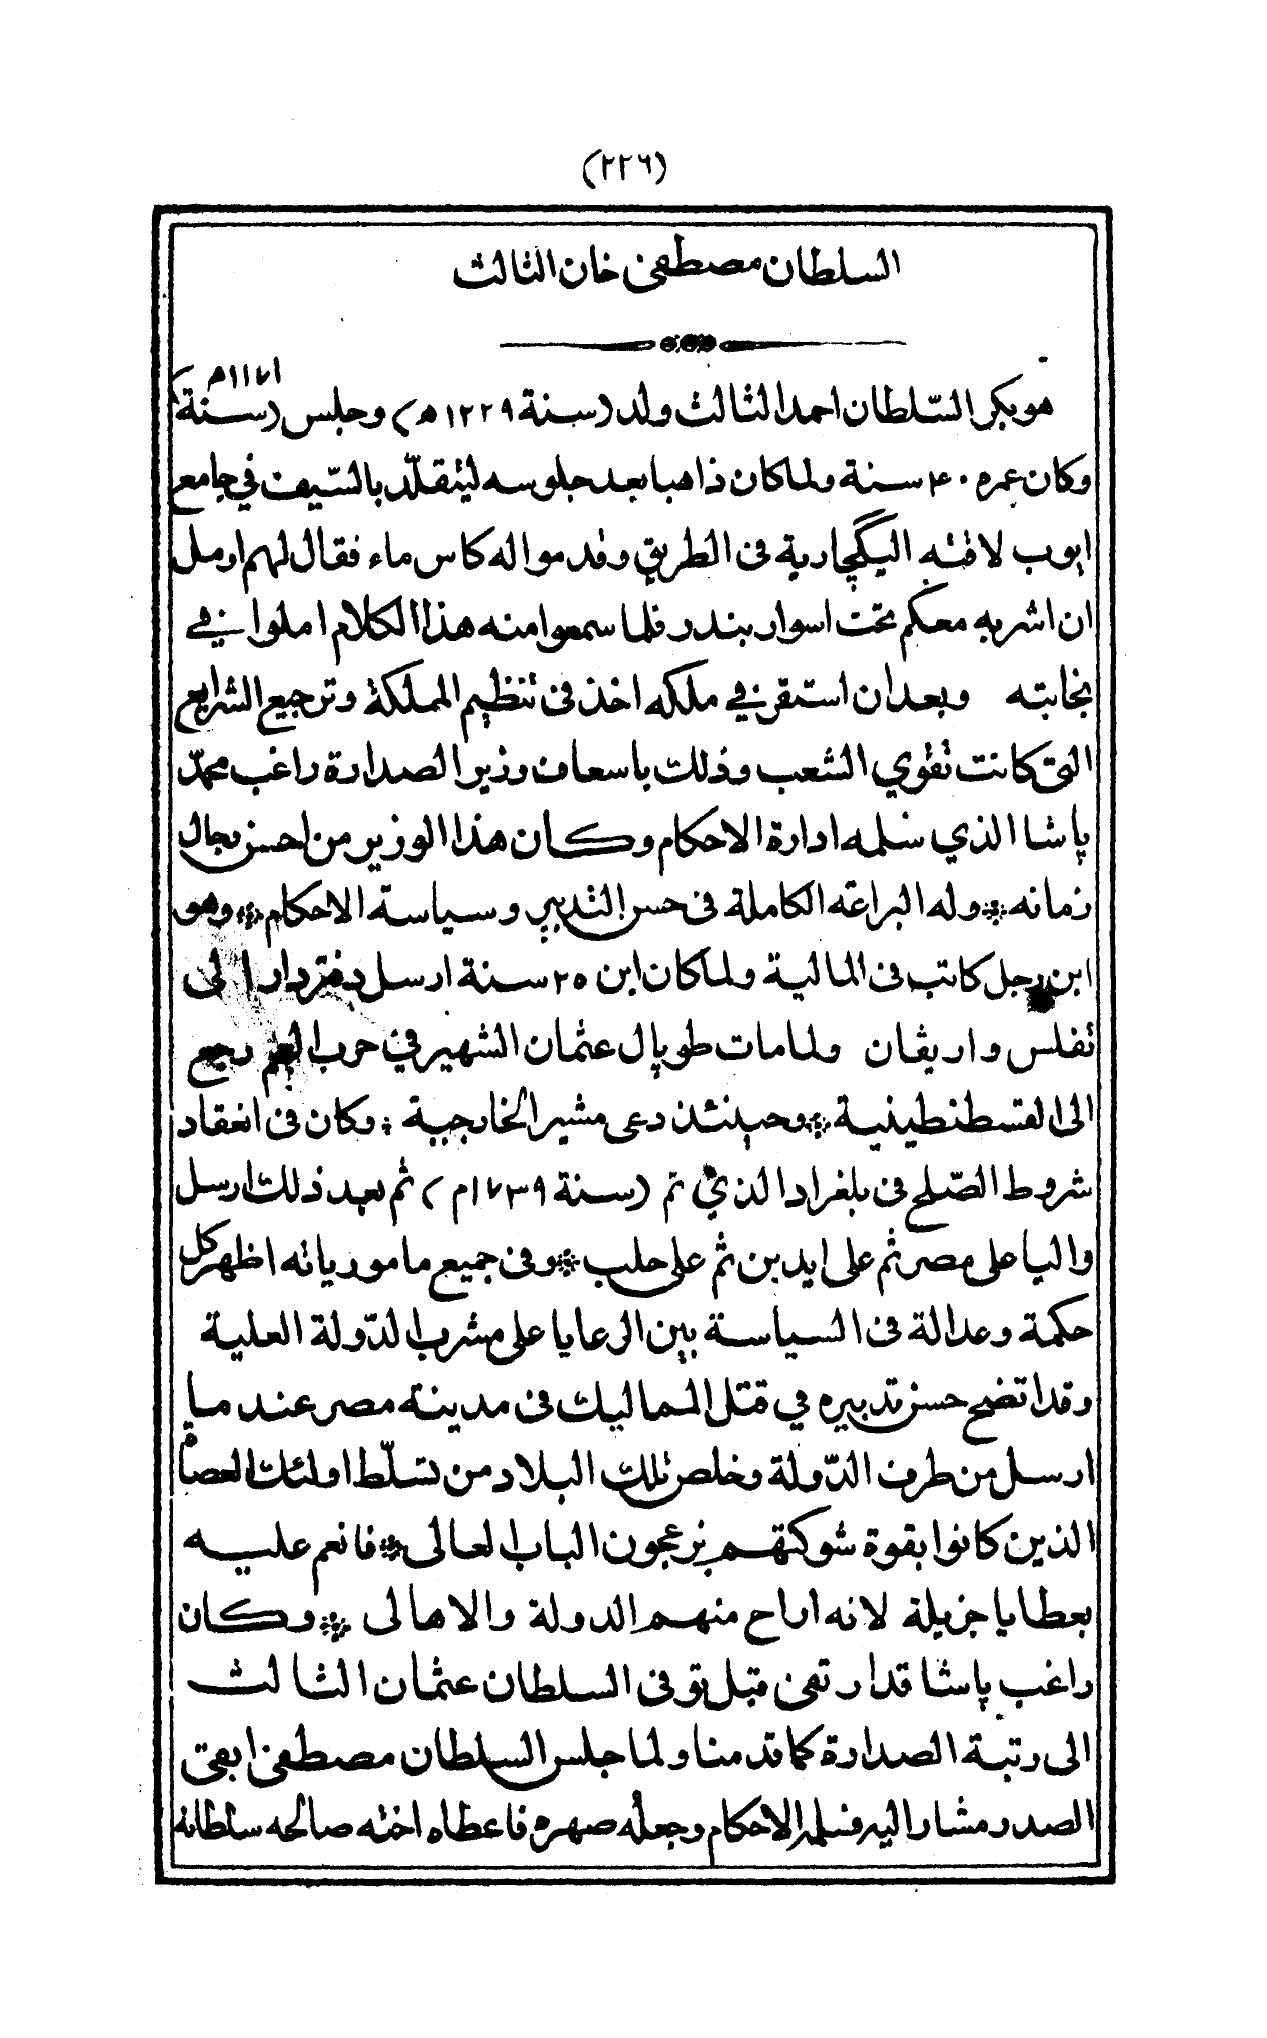 (٢٢٦)
السلطان مصطفى خان الثالث
هو بكر السّلطان احمد الثالث ولد (سنة ١٢٢٩ ه) وجلس (سنة ١١٧١ ه)
وكان عمره ٤٠ سنة ولما كان ذاهبا بعد جلوسه ليتقلّد بالسّيف في جامع
ايوب لاقته اليكچارية فى الطريق وقدموا له كاس ماء فقال لهم ارمل
ان اشربه معكم تحت اسوار بندر فلما سمعوا منه هذا الكلام املوا في
نجابته وبعد ان استقر في ملكه اخذ فى تنظيم المملكة وترجيع الشرايع
التى كانت تقوي الشعب وذلك باسعاف وزير الصدارة راغب محمّد
پاشا الذي سلمه ادارة الاحكام وكان هذا الوزير من احسن رجال
زمانه * وله البراعة الكاملة فى حسن التدبير وسياسة الاحكام * وهو
ابن رجل كاتب فى المالية ولما كان ابن ٢٥ سنة ارسل دفتردار الى
تفلس واريڤان ولما مات طوپال عثمان الشهير في حرب العجم رجع
الى القسطنطينية * وحينئذ دعى مشير الخارجية * وكان فى انعقاد
شروط الصّلح فى بلغراد الذي تم (سنة ١٧٣٩م) ثم بعد ذلك ارسل
واليا على مصر ثم على ايدين ثم على حلب * وفى جميع مامورياته اظهر كل
حكمة وعدالة فى السياسة بين الرعايا على مشرب الدّولة العلية
وقد اتضح حسن تدبيره في قتل المماليك فى مدينة مصر عند ما
ارسل من طرف الدّولة وخلص تلك البلاد من تسلّط اولئك العصاة
الذين كانوا بقوة شوكتهم يزعجون الباب العالى * فانعم عليه
بعطايا جزيلة لانه اراح منهم الدولة والاهالى * وكان
راغب پاشا قد ارتقى قبل توفى السلطان عثمان الثالث
الى رتبة الصدارة كما قدمنا ولما جلس السلطان مصطفى ابقى
الصدر مشار اليه فسلمه الاحكام وجعله صهره فاعطاه اخته صالحه سلطانه